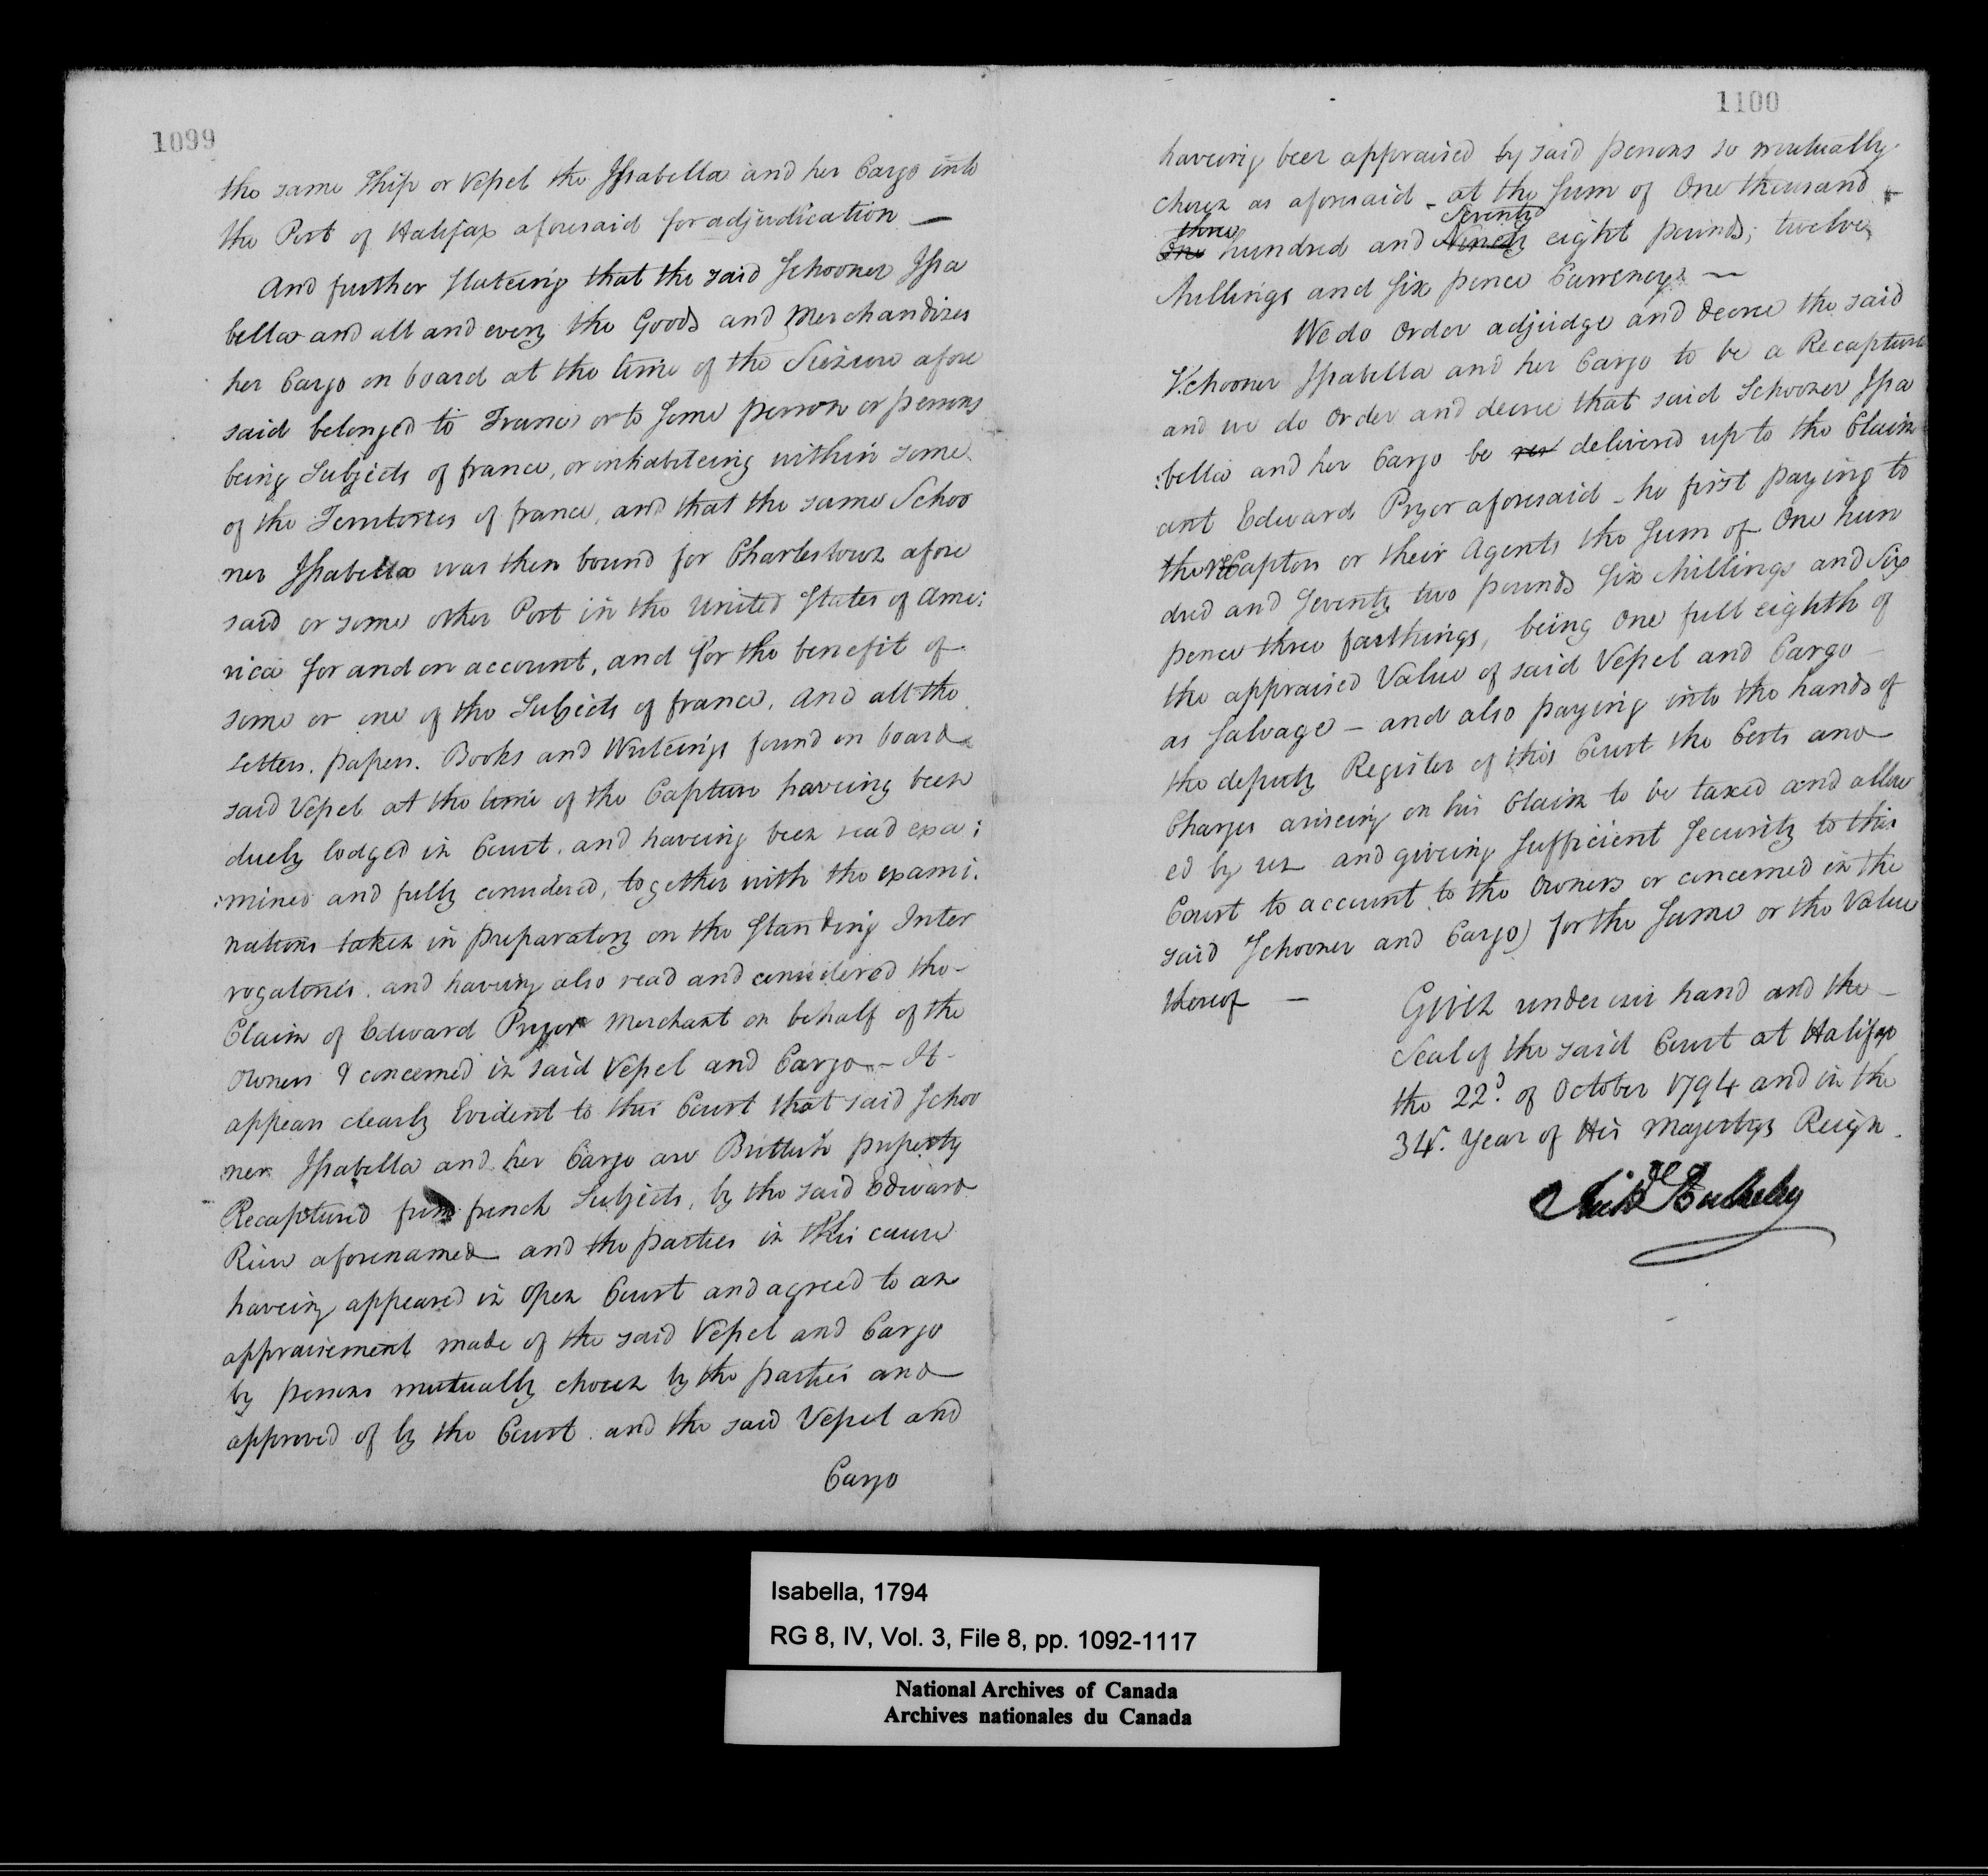 1099
the same Ship or Vessel the Issabella and her Cargo into
the Port of Halifax aforesaid for adjudication —
And further Stateing that the said Schooner Issa
bella and all and every the Goods and Merchandizes
her Cargo on board at the time of the Seizure afore
said belonged to France or to Some person or persons
being Subjects of france, or inhabiteing within some
of the Territories of france, and that the same Schoo
ner Issabella was then bound for Charlestown afore
said or some other Port in the United States of Ame:
rica for and on account, and for the benefit of
some or one of the Subjects of france. And all the
Letters. papers. Books and Writeings found on board
said Vessel at the time of the Capture haveing been
duely lodged in Court. and haveing been read exa:
:mined and fully considered, together with the exami.
nations taken in preparatory on the Standing Inter
rogatories. and having also read and considered the-
Claim of Edward Pryor Merchant on behalf of the
Owners & concerned in said Vessel and Cargo - It-
appears clearly Evident to this Court that said Schoo
ner Issabella and her Cargo are Brittish property
Recaptured from french Subjects, by the said Edward
Rice aforenamed and the parties in this cause
haveing appeared in Open Court and agreed to an
appraisement made of the said Vessel and Cargo
by persons mutually chosen by the parties and
approved of by the Court. and the said Vessel and
Cargo
1100
haveing been appraised by said persons so mutually
chosen as aforesaid - at the Sum of One thousand
three Seventy
One hundred and Ninety eight pounds; twelve
Shillings and Six pence Currency —
We do Order adjudge and decree the said
Schooner Issabella and her Cargo to be a Recapture
and we do Order and decree that said Schooner Issa
:bella and her Cargo be delivered up to the Claim
ant Edward Pryor aforesaid - he first paying to
the reCaptors or their Agents the Sum of One hun
dred and Seventy two pounds Six Shillings and Six
pence three farthings, being One full eighth of
the appraised Value of said Vessel and Cargo -
as Salvage - and also paying into the hands of
the deputy Register of this Court the Costs and
Charges ariseing on his Claim to be taxed and allow
ed by us and giveing Sufficient Security to this
Court to account to the Owners or concerned in the
said Schooner and Cargo) for the Same or the Value
thereof —
Given under our hand and the -
Seal of the said Court at Halifax
the 22d. of October 1794 and in the
34. Year of His Majestys Reign.
Richd Bulkeley
Isabella, 1794
RG 8, IV, Vol. 3, File 8, pp. 1092-1117
National Archives of Canada
Archives nationales du Canada